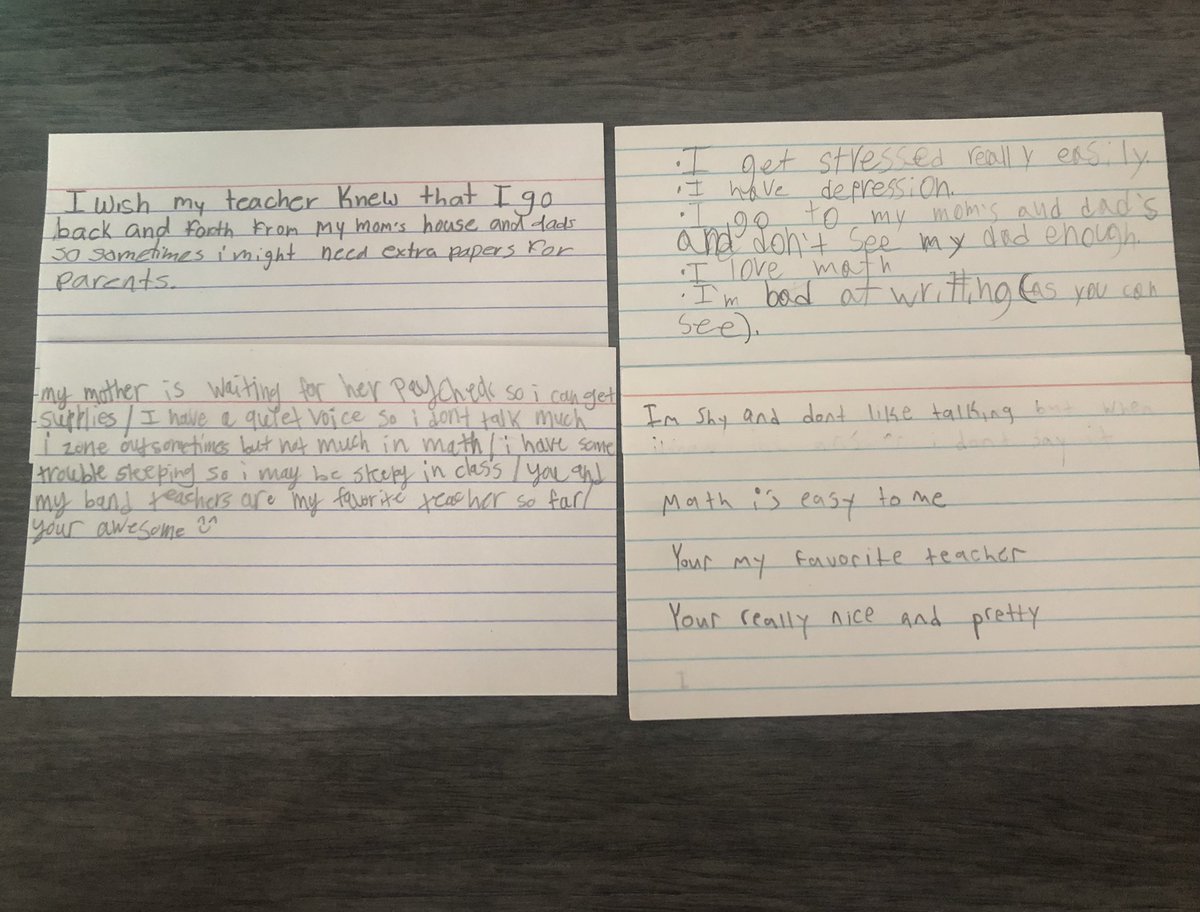 I wish my teacher knew that I go
back and forth from my mom's house and dads
so sometimes i might need extra papers for
parents.
my mother is waiting for her paycheck so i can get
supplies / I have a quiet voice so i dont talk much
i zone out sometimes but not much in math / i have some
trouble sleeping so i may be sleepy in class / you and
my band teachers are my favorite teacher so far /
your awesome
• I get stressed really easily.
• I have depression.
• I go to my mom's and dad's
and don't see my dad enough.
• I love math
• I'm bad at writting (as you can
see).
Im shy and dont like talking but when
i dont say it
Math is easy to me
Your my favorite teacher
Your really nice and pretty
I